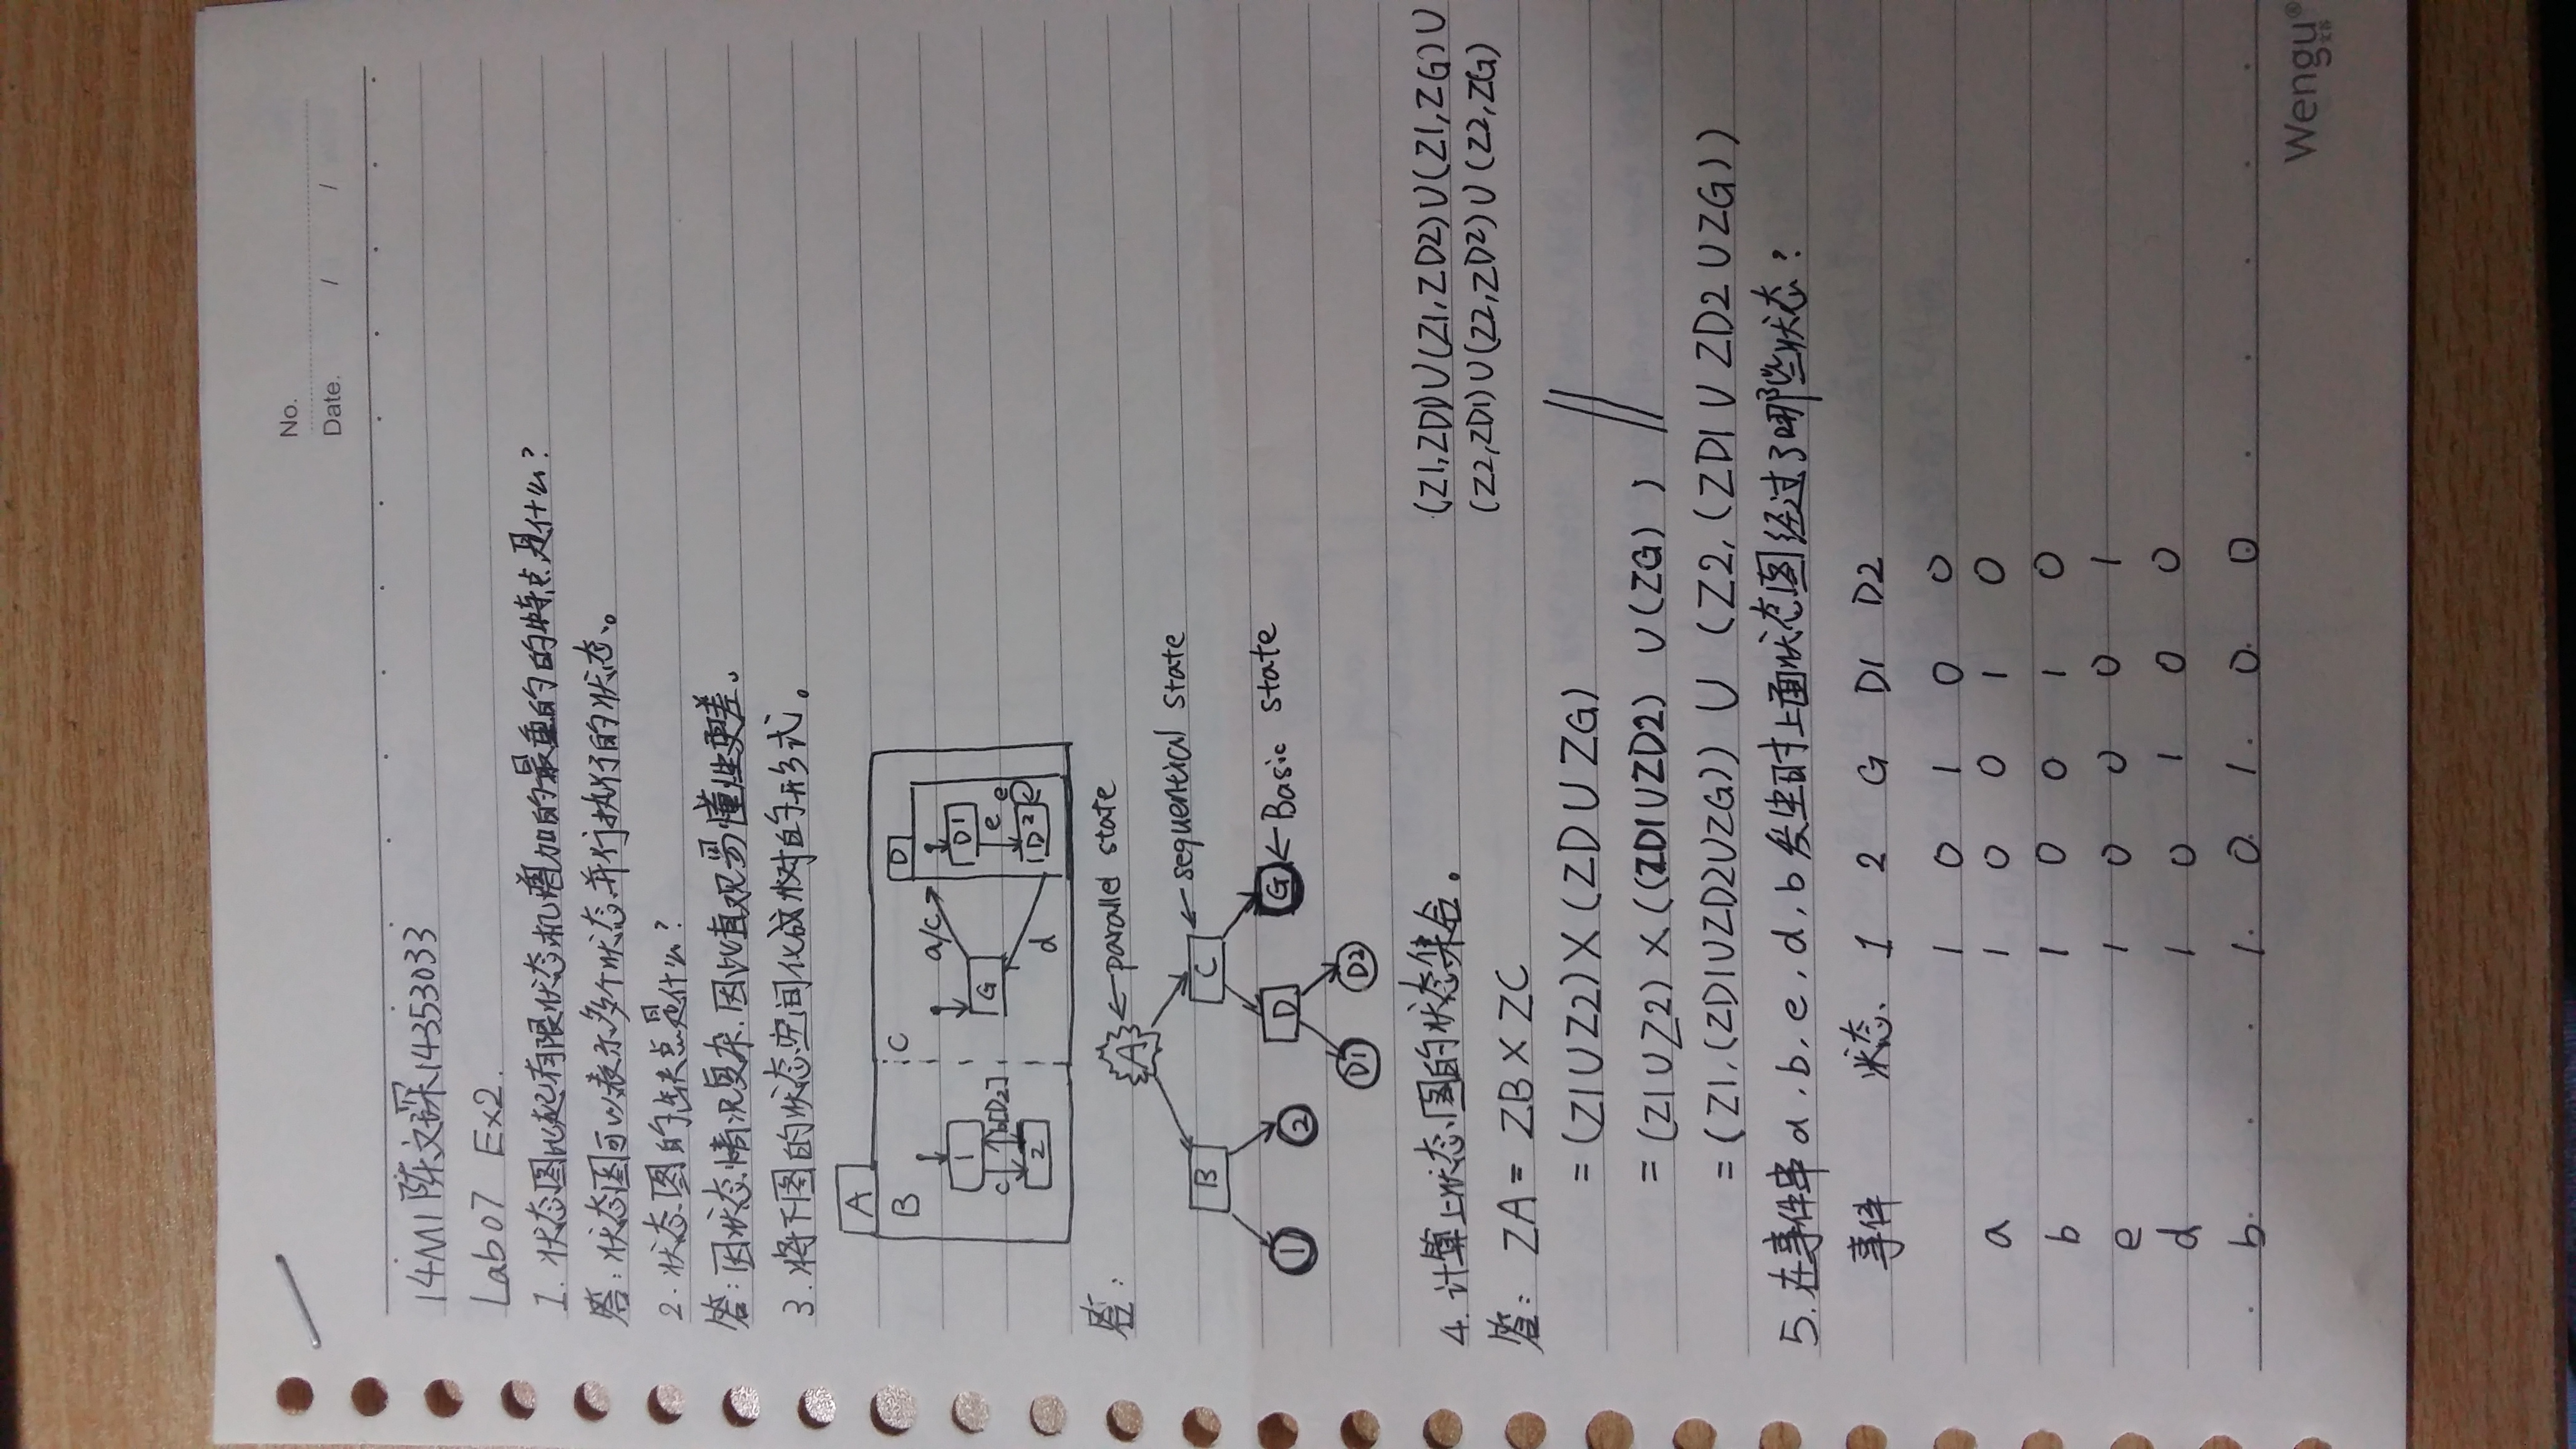 No.
Date. / /
14M1 陈文琛 14353033
Lab07 Ex2.
1. 状态图比起有限状态机增加的最重的的特点是什么?
答: 状态图可以表示多个状态并行执行的状态。
2. 状态图的缺点是什么?
答: 因状态情况复杂, 因此直观易懂性更差。
3. 将下图的状态空间化成树的形式。
A
B C D
1 c b[D2] 2
G a/c d
D1 e D2 e
答:
A ← parallel state
B C ← sequential state
1 2 D G ← Basic state
D1 D2
4. 计算上状态图的状态集合。
答: ZA = ZB X ZC
= (Z1 U Z2) X (ZD U ZG)
= (Z1 U Z2) X ((ZD1 U ZD2) U (ZG) )
= (Z1, (ZD1UZD2UZG)) U (Z2, (ZD1 U ZD2 U ZG))
(Z1,ZD1) U (Z1,ZD2) U (Z1,ZG) U
(Z2,ZD1) U (Z2,ZD2) U (Z2,ZG)
5. 在事件串 a, b, e, d, b 发生时上面状态图经过了哪些状态?
事件 状态 1 2 G D1 D2
1 0 1 0 0
a 1 0 0 1 0
b 1 0 0 1 0
e 1 0 0 0 1
d 1 0 1 0 0
b 1 0 1 0 0
Wengu®
文谷